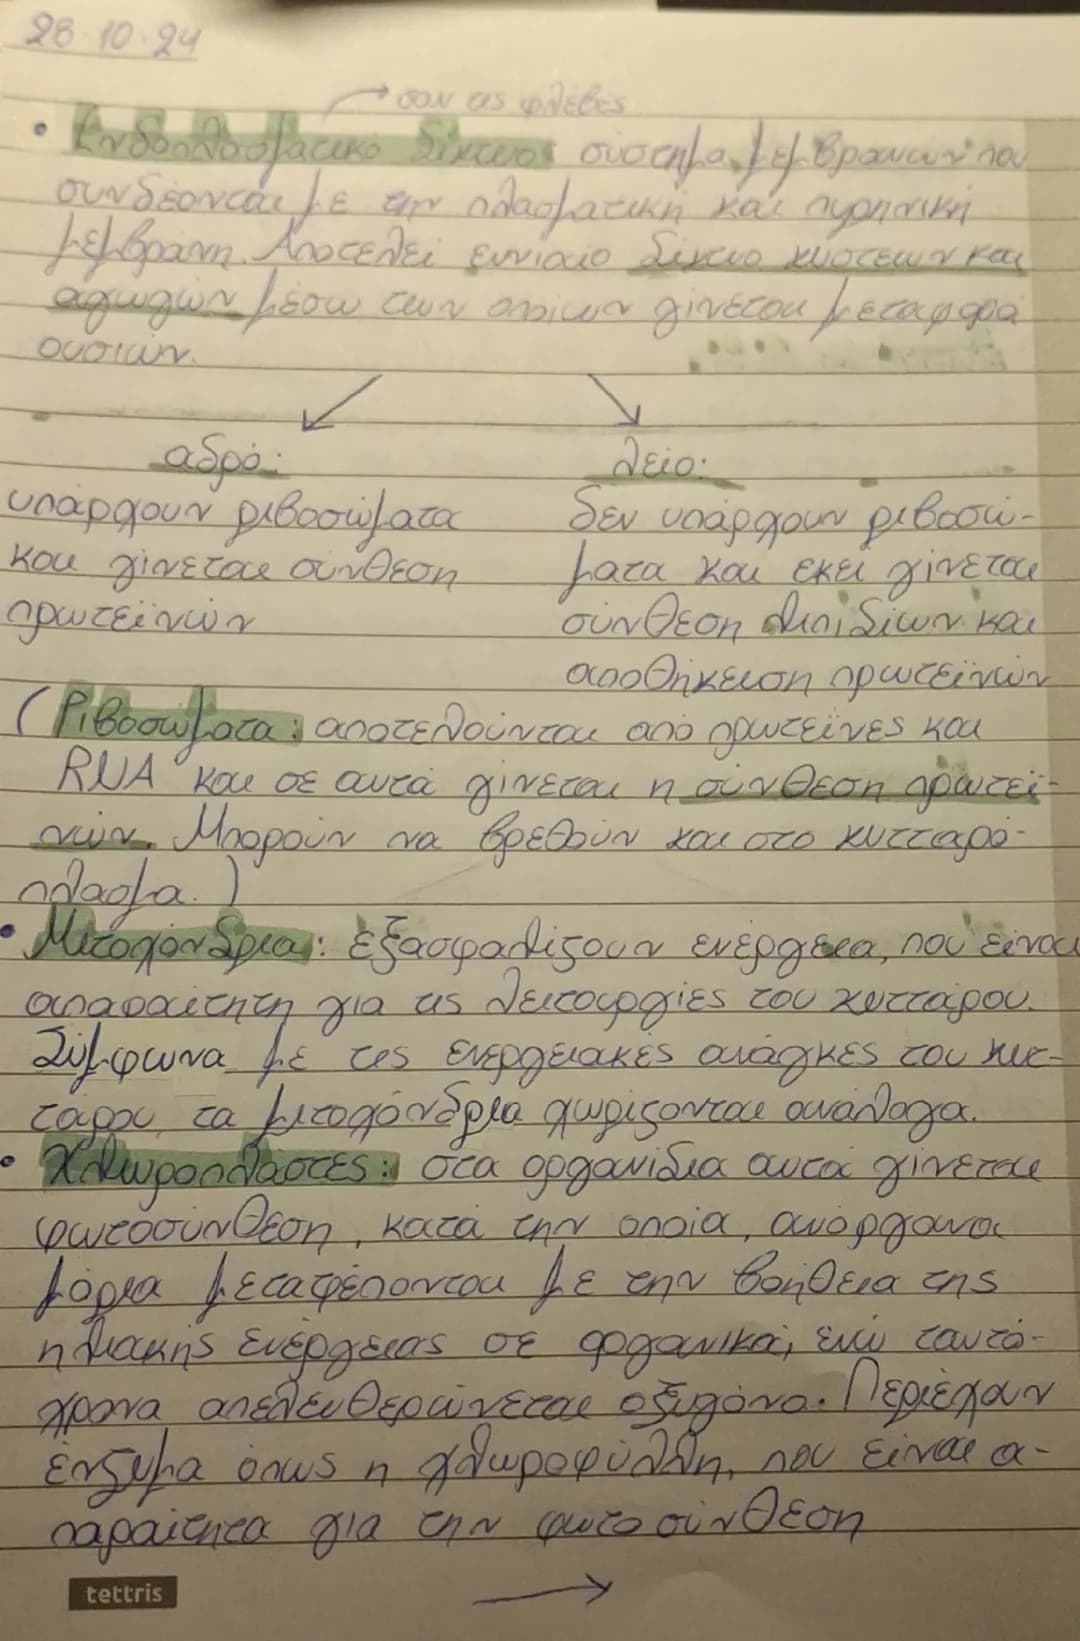 28.10.24
σαν τις φλέβες
• Ενδοπλασματικό δίκτυο: σύστημα μεμβρανών που
συνδέονται με την πλασματική και πυρηνική
μεμβράνη. Αποτελεί ενιαίο δίκτυο κύστεων και
αγωγών μέσω των οποίων γίνεται μεταφορά
ουσιών.
αδρό:
υπάρχουν ριβοσώματα
και γίνεται σύνθεση
πρωτεϊνών
λείο:
δεν υπάρχουν ριβοσώ-
ματα και εκεί γίνεται
σύνθεση λιπιδίων και
αποθήκευση πρωτεϊνών
(Ριβοσώματα: αποτελούνται από πρωτεΐνες και
RNA και σε αυτά γίνεται η σύνθεση πρωτεϊ-
νών. Μπορούν να βρεθούν και στο κυτταρό-
πλασμα.)
• Μιτοχόνδρια: εξασφαλίζουν ενέργεια, που είναι
απαραίτητη για τις λειτουργίες του κυττάρου.
Σύμφωνα με τις ενεργειακές ανάγκες του κυτ-
τάρου, τα μιτοχόνδρια χωρίζονται ανάλογα.
• Χλωροπλάστες: στα οργανίδια αυτά γίνεται
φωτοσύνθεση, κατά την οποία, ανόργανα
μόρια μετατρέπονται με την βοήθεια της
ηλιακής ενέργειας σε οργανικά, ενώ ταυτό-
χρονα απελευθερώνεται οξυγόνο. Περιέχουν
ένζυμα όπως η χλωροφύλλη, που είναι α-
παραίτητα για την φωτοσύνθεση
tettris